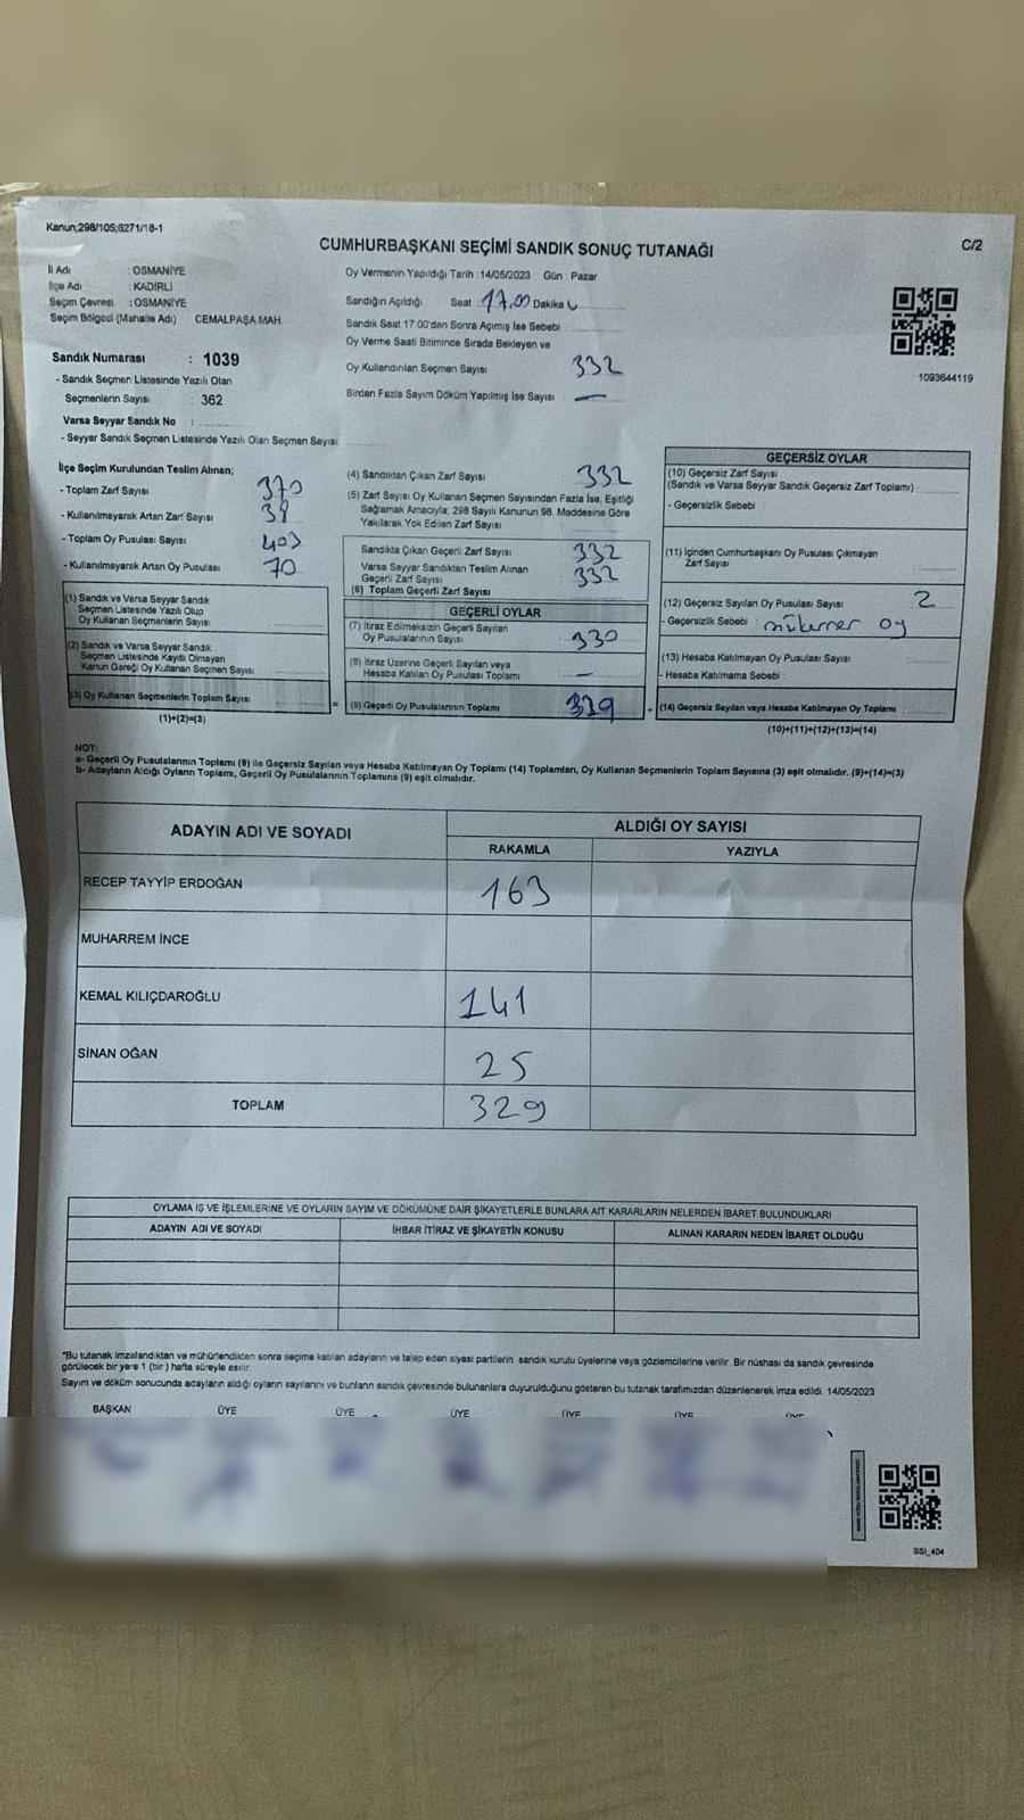 Kanun;298/105;6271/18-1
CUMHURBAŞKANI SEÇİMİ SANDIK SONUÇ TUTANAĞI
C/2
İl Adı : OSMANİYE
İlçe Adı : KADİRLİ
Seçim Çevresi : OSMANİYE
Seçim Bölgesi (Mahalle Adı) CEMALPAŞA MAH.
Oy Vermenin Yapıldığı Tarih : 14/05/2023 Gün : Pazar
Sandığın Açıldığı Saat 17.00 Dakika
Sandık Saat 17.00'dan Sonra Açılmış İse Sebebi
Oy Verme Saati Bitiminde Sırada Bekleyen ve
Oy Kullandırılan Seçmen Sayısı 332
Birden Fazla Sayım Döküm Yapılmış İse Sayısı —
1093644119
Sandık Numarası : 1039
- Sandık Seçmen Listesinde Yazılı Olan
Seçmenlerin Sayısı 362
Varsa Seyyar Sandık No :
- Seyyar Sandık Seçmen Listesinde Yazılı Olan Seçmen Sayısı
İlçe Seçim Kurulundan Teslim Alınan;
- Toplam Zarf Sayısı 370
- Kullanılmayarak Artan Zarf Sayısı 38
- Toplam Oy Pusulası Sayısı 403
- Kullanılmayarak Artan Oy Pusulası 70
(1) Sandık ve Varsa Seyyar Sandık
Seçmen Listesinde Yazılı Olup
Oy Kullanan Seçmenlerin Sayısı
(2) Sandık ve Varsa Seyyar Sandık
Seçmen Listesinde Kayıtlı Olmayan
Kanun Gereği Oy Kullanan Seçmen Sayısı
(3) Oy Kullanan Seçmenlerin Toplam Sayısı
(1)+(2)=(3)
(4) Sandıktan Çıkan Zarf Sayısı 332
(5) Zarf Sayısı Oy Kullanan Seçmen Sayısından Fazla İse, Eşitliği
Sağlamak Amacıyla; 298 Sayılı Kanunun 98. Maddesine Göre
Yakılarak Yok Edilen Zarf Sayısı
Sandıkta Çıkan Geçerli Zarf Sayısı 332
Varsa Seyyar Sandıktan Teslim Alınan
Geçerli Zarf Sayısı 332
(6) Toplam Geçerli Zarf Sayısı
GEÇERLİ OYLAR
(7) İtiraz Edilmeksizin Geçerli Sayılan
Oy Pusulalarının Sayısı 330
(8) İtiraz Üzerine Geçerli Sayılan veya
Hesaba Katılan Oy Pusulası Toplamı —
= (9) Geçerli Oy Pusulalarının Toplamı
GEÇERSİZ OYLAR
(10) Geçersiz Zarf Sayısı
(Sandık ve Varsa Seyyar Sandık Geçersiz Zarf Toplamı)
- Geçersizlik Sebebi
(11) İçinden Cumhurbaşkanı Oy Pusulası Çıkmayan
Zarf Sayısı
(12) Geçersiz Sayılan Oy Pusulası Sayısı 2
- Geçersizlik Sebebi oy
(13) Hesaba Katılmayan Oy Pusulası Sayısı
- Hesaba Katılmama Sebebi
+ (14) Geçersiz Sayılan veya Hesaba Katılmayan Oy Toplamı
(10)+(11)+(12)+(13)=(14)
NOT:
a- Geçerli Oy Pusulalarının Toplamı (9) ile Geçersiz Sayılan veya Hesaba Katılmayan Oy Toplamı (14) Toplamları, Oy Kullanan Seçmenlerin Toplam Sayısına (3) eşit olmalıdır. (9)+(14)=(3)
b- Adayların Aldığı Oyların Toplamı, Geçerli Oy Pusulalarının Toplamına (9) eşit olmalıdır.
ADAYIN ADI VE SOYADI ALDIĞI OY SAYISI
RAKAMLA YAZIYLA
RECEP TAYYİP ERDOĞAN 163
MUHARREM İNCE
KEMAL KILIÇDAROĞLU 141
SİNAN OĞAN 25
TOPLAM 329
OYLAMA İŞ VE İŞLEMLERİNE VE OYLARIN SAYIM VE DÖKÜMÜNE DAİR ŞİKAYETLERLE BUNLARA AİT KARARLARIN NELERDEN İBARET BULUNDUKLARI
ADAYIN ADI VE SOYADI İHBAR İTİRAZ VE ŞİKAYETİN KONUSU ALINAN KARARIN NEDEN İBARET OLDUĞU
*Bu tutanak imzalandıktan ve mühürlendikten sonra seçime katılan adayların ve talep eden siyasi partilerin sandık kurulu üyelerine veya gözlemcilerine verilir. Bir nüshası da sandık çevresinde
görülecek bir yere 1 (bir) hafta süreyle asılır.
Sayım ve döküm sonucunda adayların aldığı oyların sayılarını ve bunların sandık çevresinde bulunanlara duyurulduğunu gösteren bu tutanak tarafımızdan düzenlenerek imza edildi. 14/05/2023
BAŞKAN ÜYE ÜYE ÜYE ÜYE ÜYE ÜYE
SSI_404